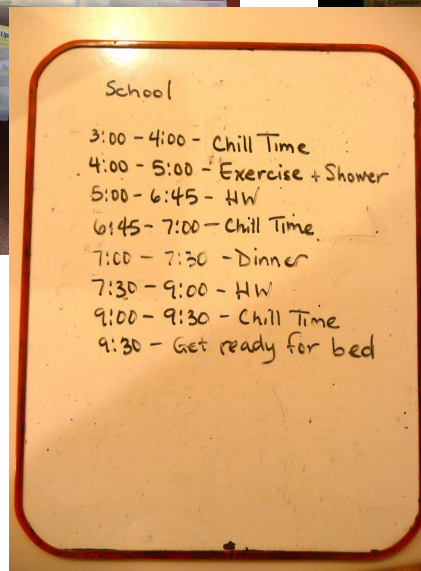 School
3:00 - 4:00 - Chill Time
4:00 - 5:00 - Exercise + Shower
5:00 - 6:45 - HW
6:45 - 7:00 - Chill Time
7:00 - 7:30 - Dinner
7:30 - 9:00 - HW
9:00 - 9:30 - Chill Time
9:30 - Get ready for bed